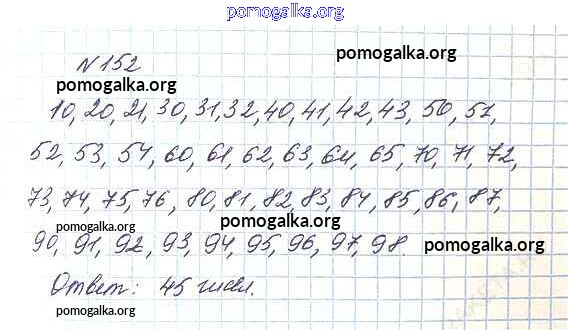 pomogalka.org
№ 152
pomogalka.org
pomogalka.org
pomogalka.org
10, 20, 21, 30, 31, 32, 40, 41, 42, 43, 50, 51,
52, 53, 54, 60, 61, 62, 63, 64, 65, 70, 71, 72,
73, 74, 75, 76, 80, 81, 82, 83, 84, 85, 86, 87,
pomogalka.org
pomogalka.org
90, 91, 92, 93, 94, 95, 96, 97, 98.
pomogalka.org
Ответ: 45 чисел.
pomogalka.org
pomogalka.org